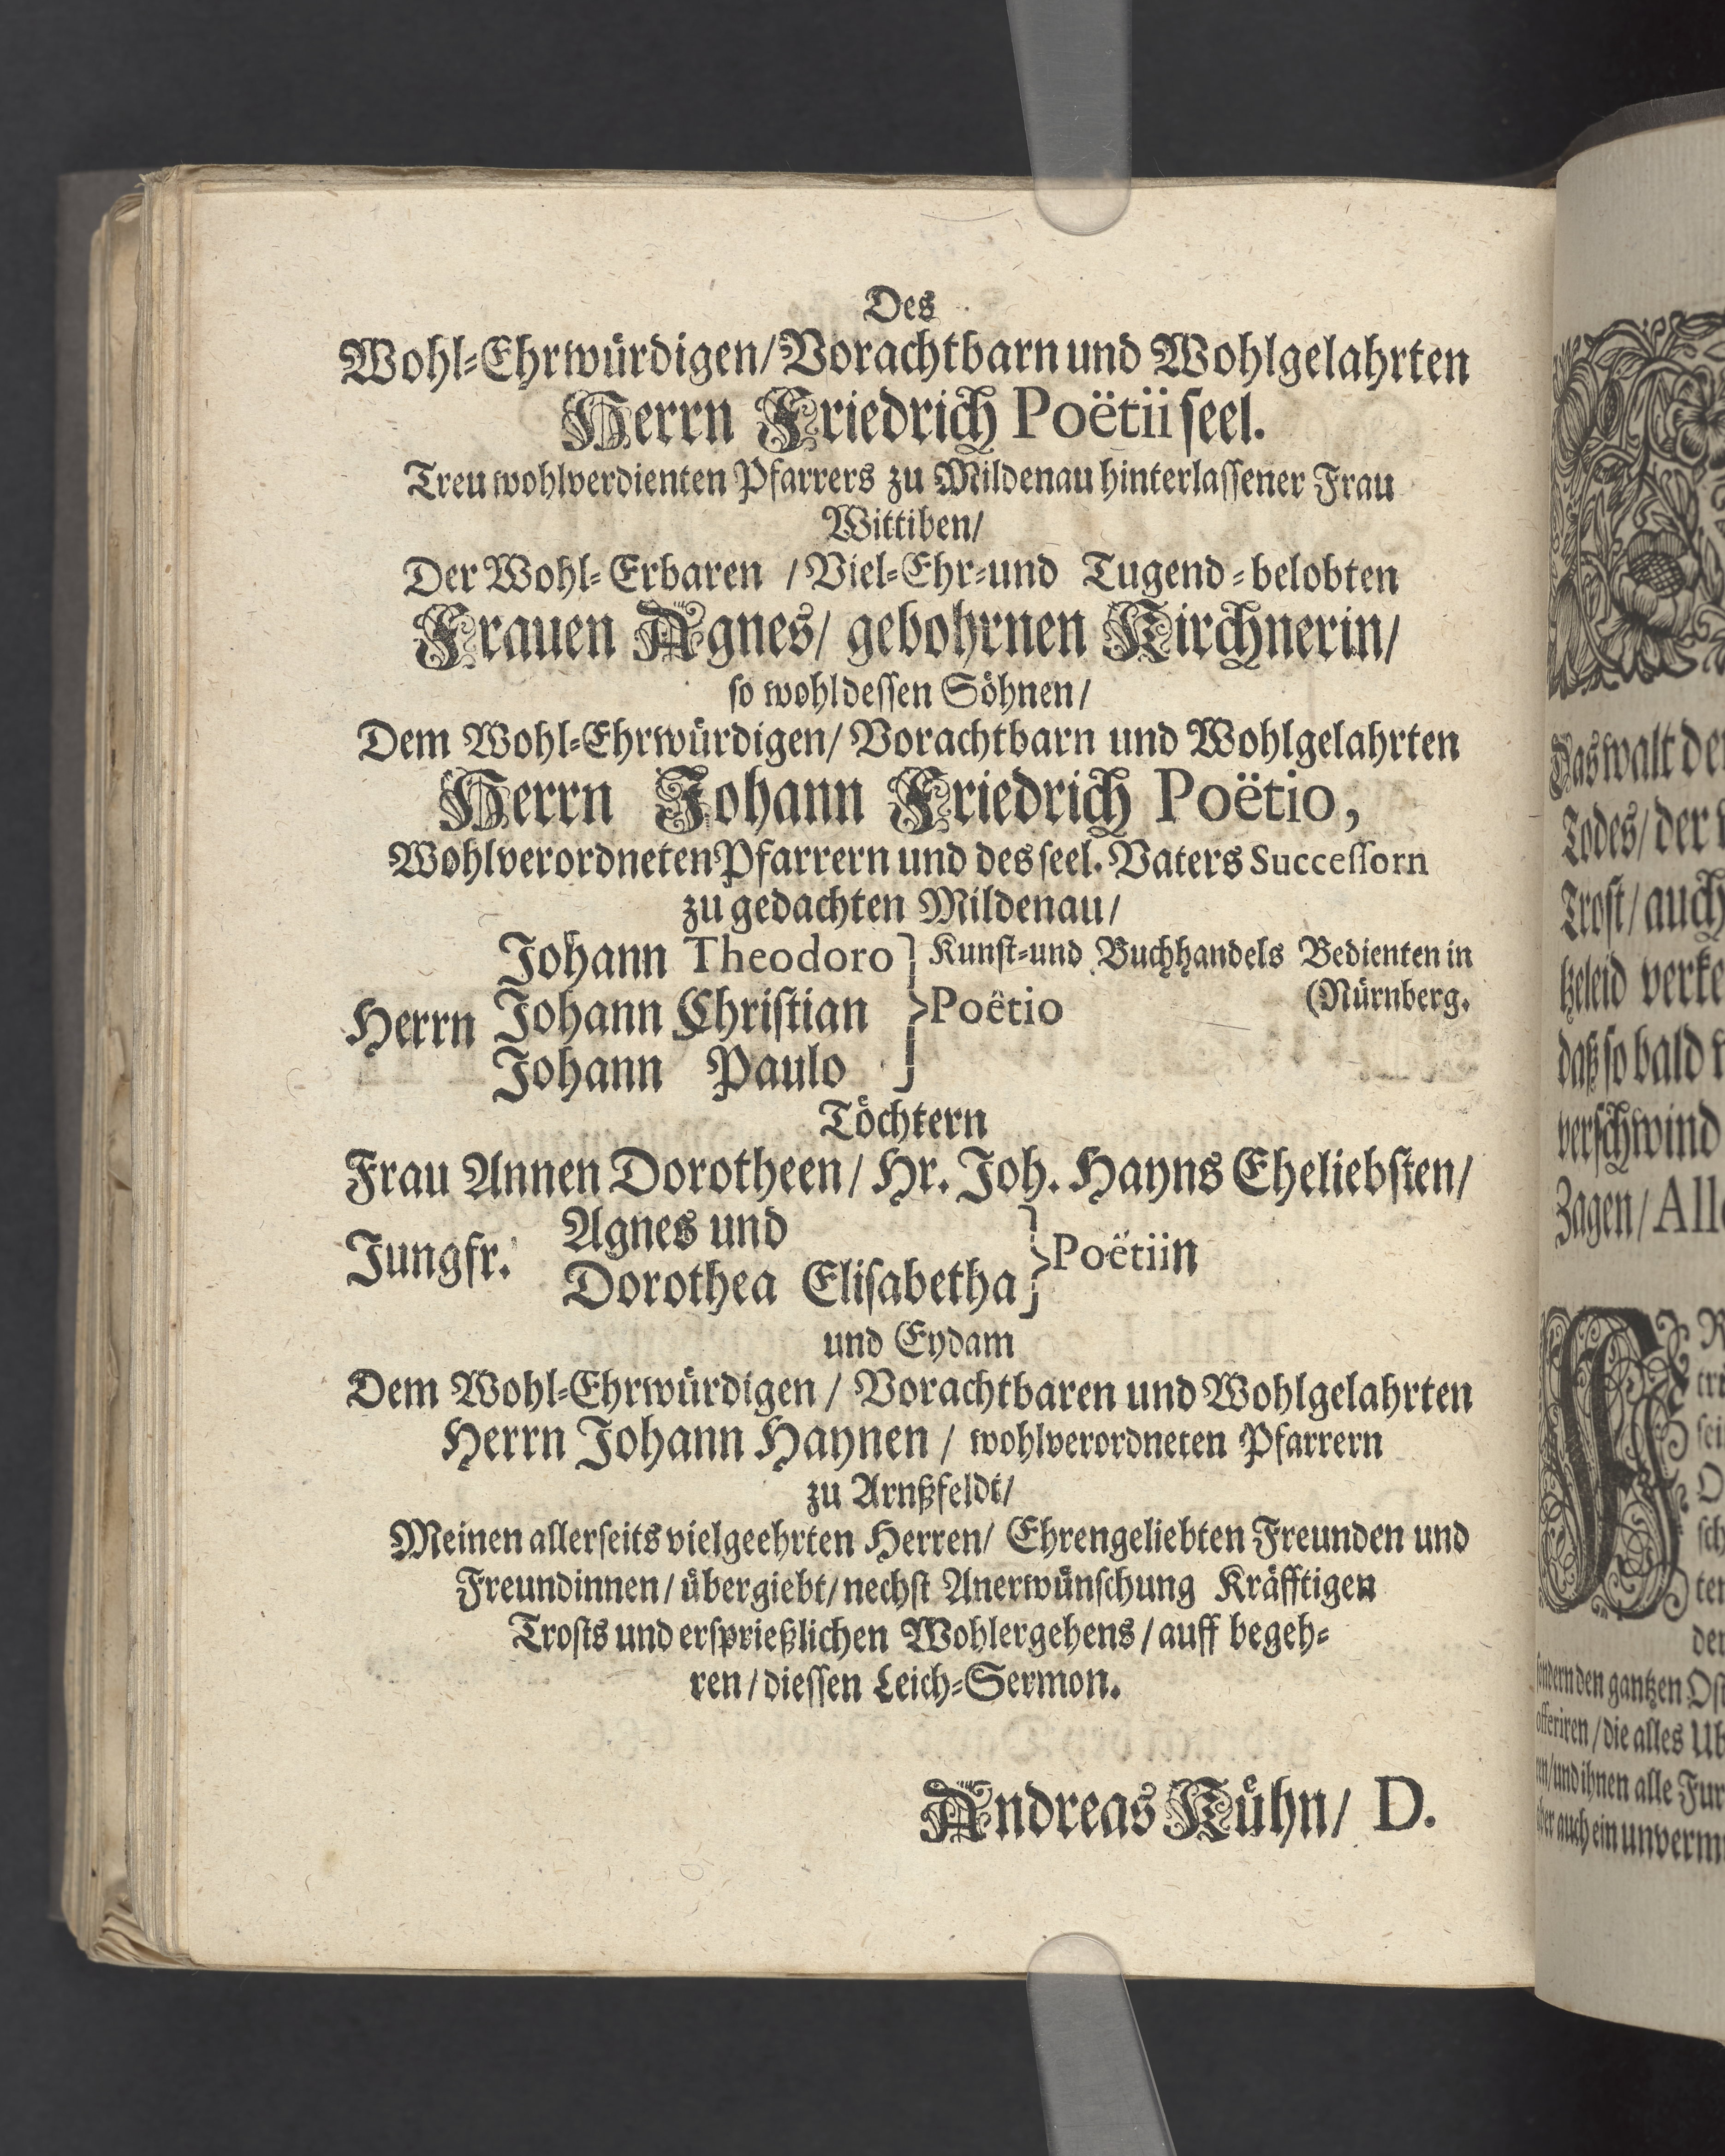 Des
Wohl-Ehrwürdigen/ Vorachtbarn und Wohlgelahrten
Herrn Friedrich Poëtii seel.
Treu wohlverdienten Pfarrers zu Mildenau hinterlassener Frau
Wittiben/
Der Wohl-Erbaren / Viel-Ehr-und Tugend-belobten
Frauen Agnes/ gebohrnen Kirchnerin/
so wohl dessen Söhnen/
Dem Wohl-Ehrwürdigen/ Vorachtbarn und Wohlgelahrten
Herrn Johann Friedrich Poëtio,
Wohlverordneten Pfarrern und des seel. Vaters Successorn
zu gedachten Mildenau/
Johann Theodoro Kunst-und Buchhandels Bedienten in
Herrn Johann Christian Poëtio (Nürnberg.
Johann Paulo
Töchtern
Frau Annen Dorotheen/ Hr. Joh. Hayns Eheliebsten/
Agnes und
Jungfr. Poëtiin
Dorothea Elisabetha
und Eydam
Dem Wohl-Ehrwürdigen / Vorachtbaren und Wohlgelahrten
Herrn Johann Haynen / wohlverordneten Pfarrern
zu Arnßfeldt/
Meinen allerseits vielgeehrten Herren/ Ehrengeliebten Freunden und
Freundinnen/ übergiebt/ nechst Anerwünschung Kräfftigen
Trosts und ersprießlichen Wohlergehens / auff begeh-
ren / diessen Leich-Sermon.
Andreas Kühn/ D.
Das walt
Todes/ der
Trost/ auch
daß so bald
verschwind
Zagen/
sondern den gantzen
offeriren / die alles
und ihnen alle
aber auch ein